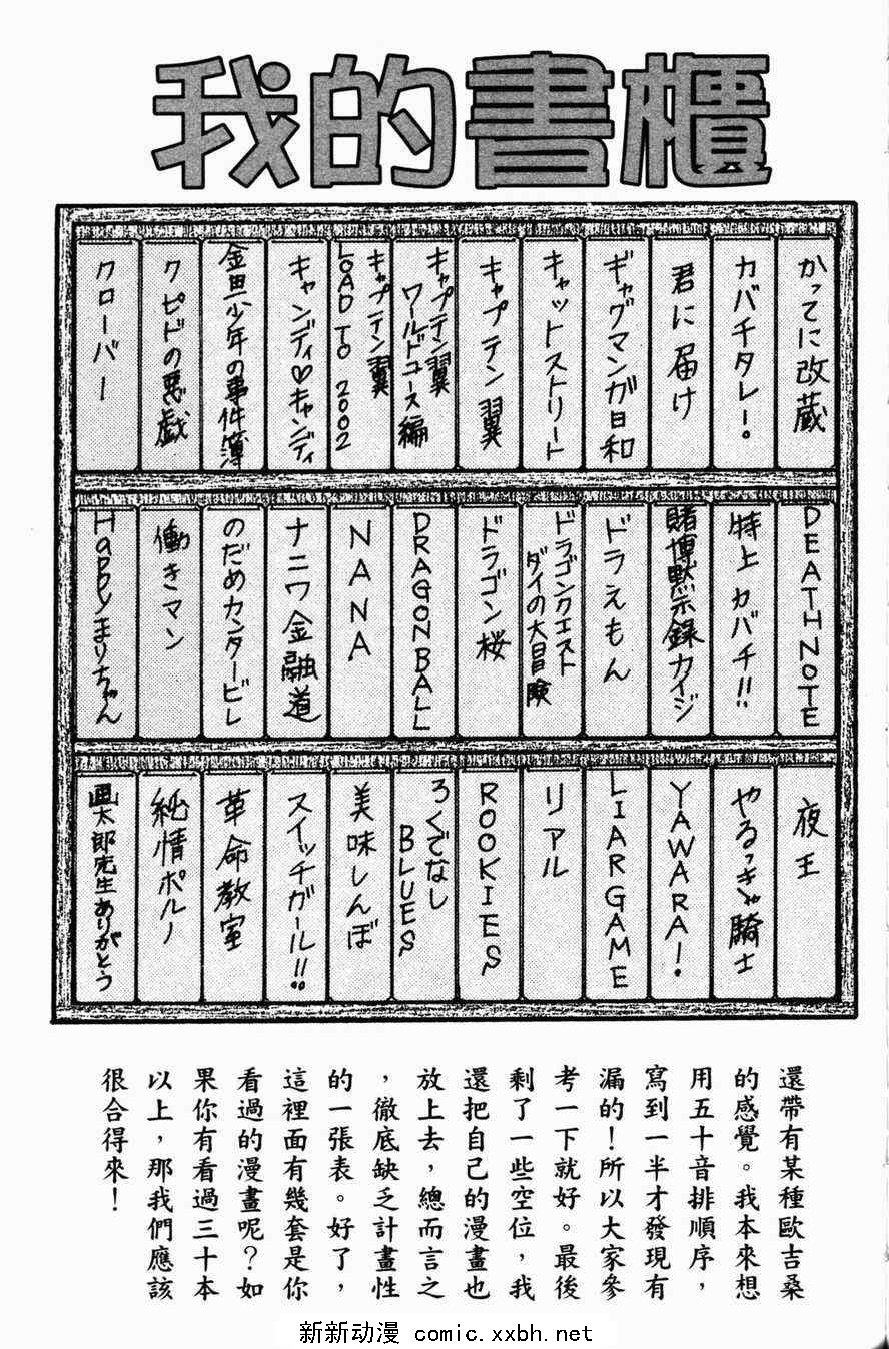 我的書櫃
かってに改蔵
カバチタレ！
君に届け
ギャグマンガ日和
キャットストリート
キャプテン翼
キャプテン翼
ワールドユース編
キャプテン翼
LOAD TO 2002
キャンディ♡キャンディ
金田一少年の事件簿
クピドの悪戯
クローバー
DEATH NOTE
特上カバチ!!
賭博黙示録カイジ
ドラえもん
ドラゴンクエスト
ダイの大冒険
ドラゴン桜
DRAGON BALL
NANA
ナニワ金融道
のだめカンタービレ
働きマン
Happyまりちゃん
夜王
やるっきゃ騎士
YAWARA!
LIAR GAME
リアル
ROOKIES
ろくでなし
BLUES
美味しんぼ
スイッチガール!!
革命教室
純情ポルノ
画太郎先生ありがとう
還帶有某種歐吉桑
的感覺。我本來想
用五十音排順序，
寫到一半才發現有
漏的！所以大家參
考一下就好。最後
剩了一些空位，我
還把自己的漫畫也
放上去，總而言之
，徹底缺乏計畫性
的一張表。好了，
這裡面有幾套是你
看過的漫畫呢？如
果你有看過三十本
以上，那我們應該
很合得來！
新新动漫 comic.xxbh.net